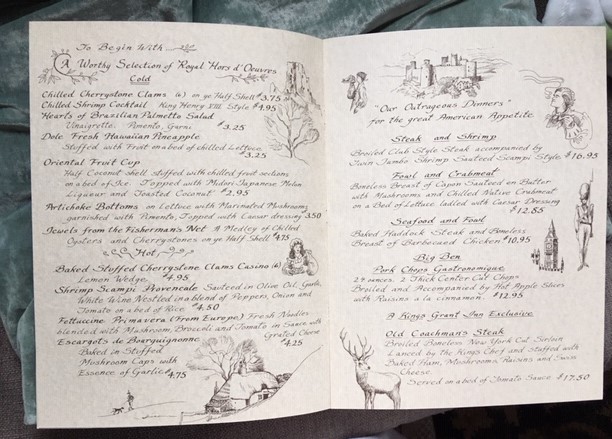 To Begin With
A Worthy Selection of "Royal" Hors d' Oeuvres
Cold
Chilled Cherrystone Clams (6) on ye Half Shell $3.75
Chilled Shrimp Cocktail King Henry VIII Style $4.95
Hearts of Brazilian Palmetto Salad
Vinaigrette, Pimento, Garni $3.25
Dole Fresh Hawaiian Pineapple
Stuffed with Fruit on a bed of chilled Lettuce $3.25
Oriental Fruit Cup
Half Coconut shell stuffed with chilled fruit sections
on a bed of Ice. Topped with Midori-Japanese Melon
Liqueur and Toasted Coconut
Artichoke Bottoms on Lettuce with Marinated Mushrooms
garnished with Pimento, Topped with Caesar dressing 3.50
Jewels from the Fisherman's Net A Medley of Chilled
Oysters and Cherrystones on ye Half Shell $4.75
Hot
Baked Stuffed Cherrystone Clams Casino (6)
Lemon Wedge, $4.95
Shrimp Scampi Provencale Sauteed in Olive Oil, Garlic,
White Wine Nestled in a blend of Peppers, Onion and
Tomato on a bed of Rice $4.50
Fettuccine Primavera (From Europe) Fresh Noodles
blended with Mushroom, Broccoli and Tomato in Sauce with
Grated Cheese $4.25
Escargots de Bourguignonne
Baked in Stuffed
Mushroom Caps with
Essence of Garlic $4.75
"Our Outrageous Dinners"
for the great American Appetite
Steak and Shrimp
Broiled Club Style Steak accompanied by
Twin Jumbo Shrimp Sauteed Scampi Style $16.95
Fowl and Crabmeat
Boneless Breast of Capon Sauteed en Butter
with Mushrooms and Chilled Native Crabmeat
on a Bed of Lettuce ladled with Caesar Dressing
$12.55
Seafood and Fowl
Baked Haddock Steak and Boneless
Breast of Barbecued Chicken $10.95
Big Ben
Pork Chops Gastronomique
24 ounces. 2 Thick Center Cut Chops
Broiled and Accompanied by Hot Apple Slices
with Raisins a la cinnamon. $12.95
A Kings Grant Inn Exclusive
Old Coachman's Steak
Broiled Boneless New York Cut Sirloin
Lanced by the Kings Chef and Stuffed with
Baked Ham, Mushrooms, Raisins and Swiss
Cheese.
Served on a bed of Tomato Sauce $17.50